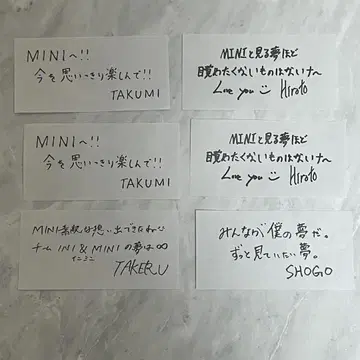 MINIへ!!
今を思いっきり楽しんで!!
TAKUMI
MINIと見る夢ほど
目覚めたくないものはないナ〜
Love you Hiroto
MINIへ!!
今を思いっきり楽しんで!!
TAKUMI
MINIと見る夢ほど
目覚めたくないものはないナ〜
Love you Hiroto
MINI素敵な想い出できたね
チーム INI & MINI の夢は∞
TAKERU
みんなが僕の夢だ。
ずっと見ていたい夢。
SHOGO